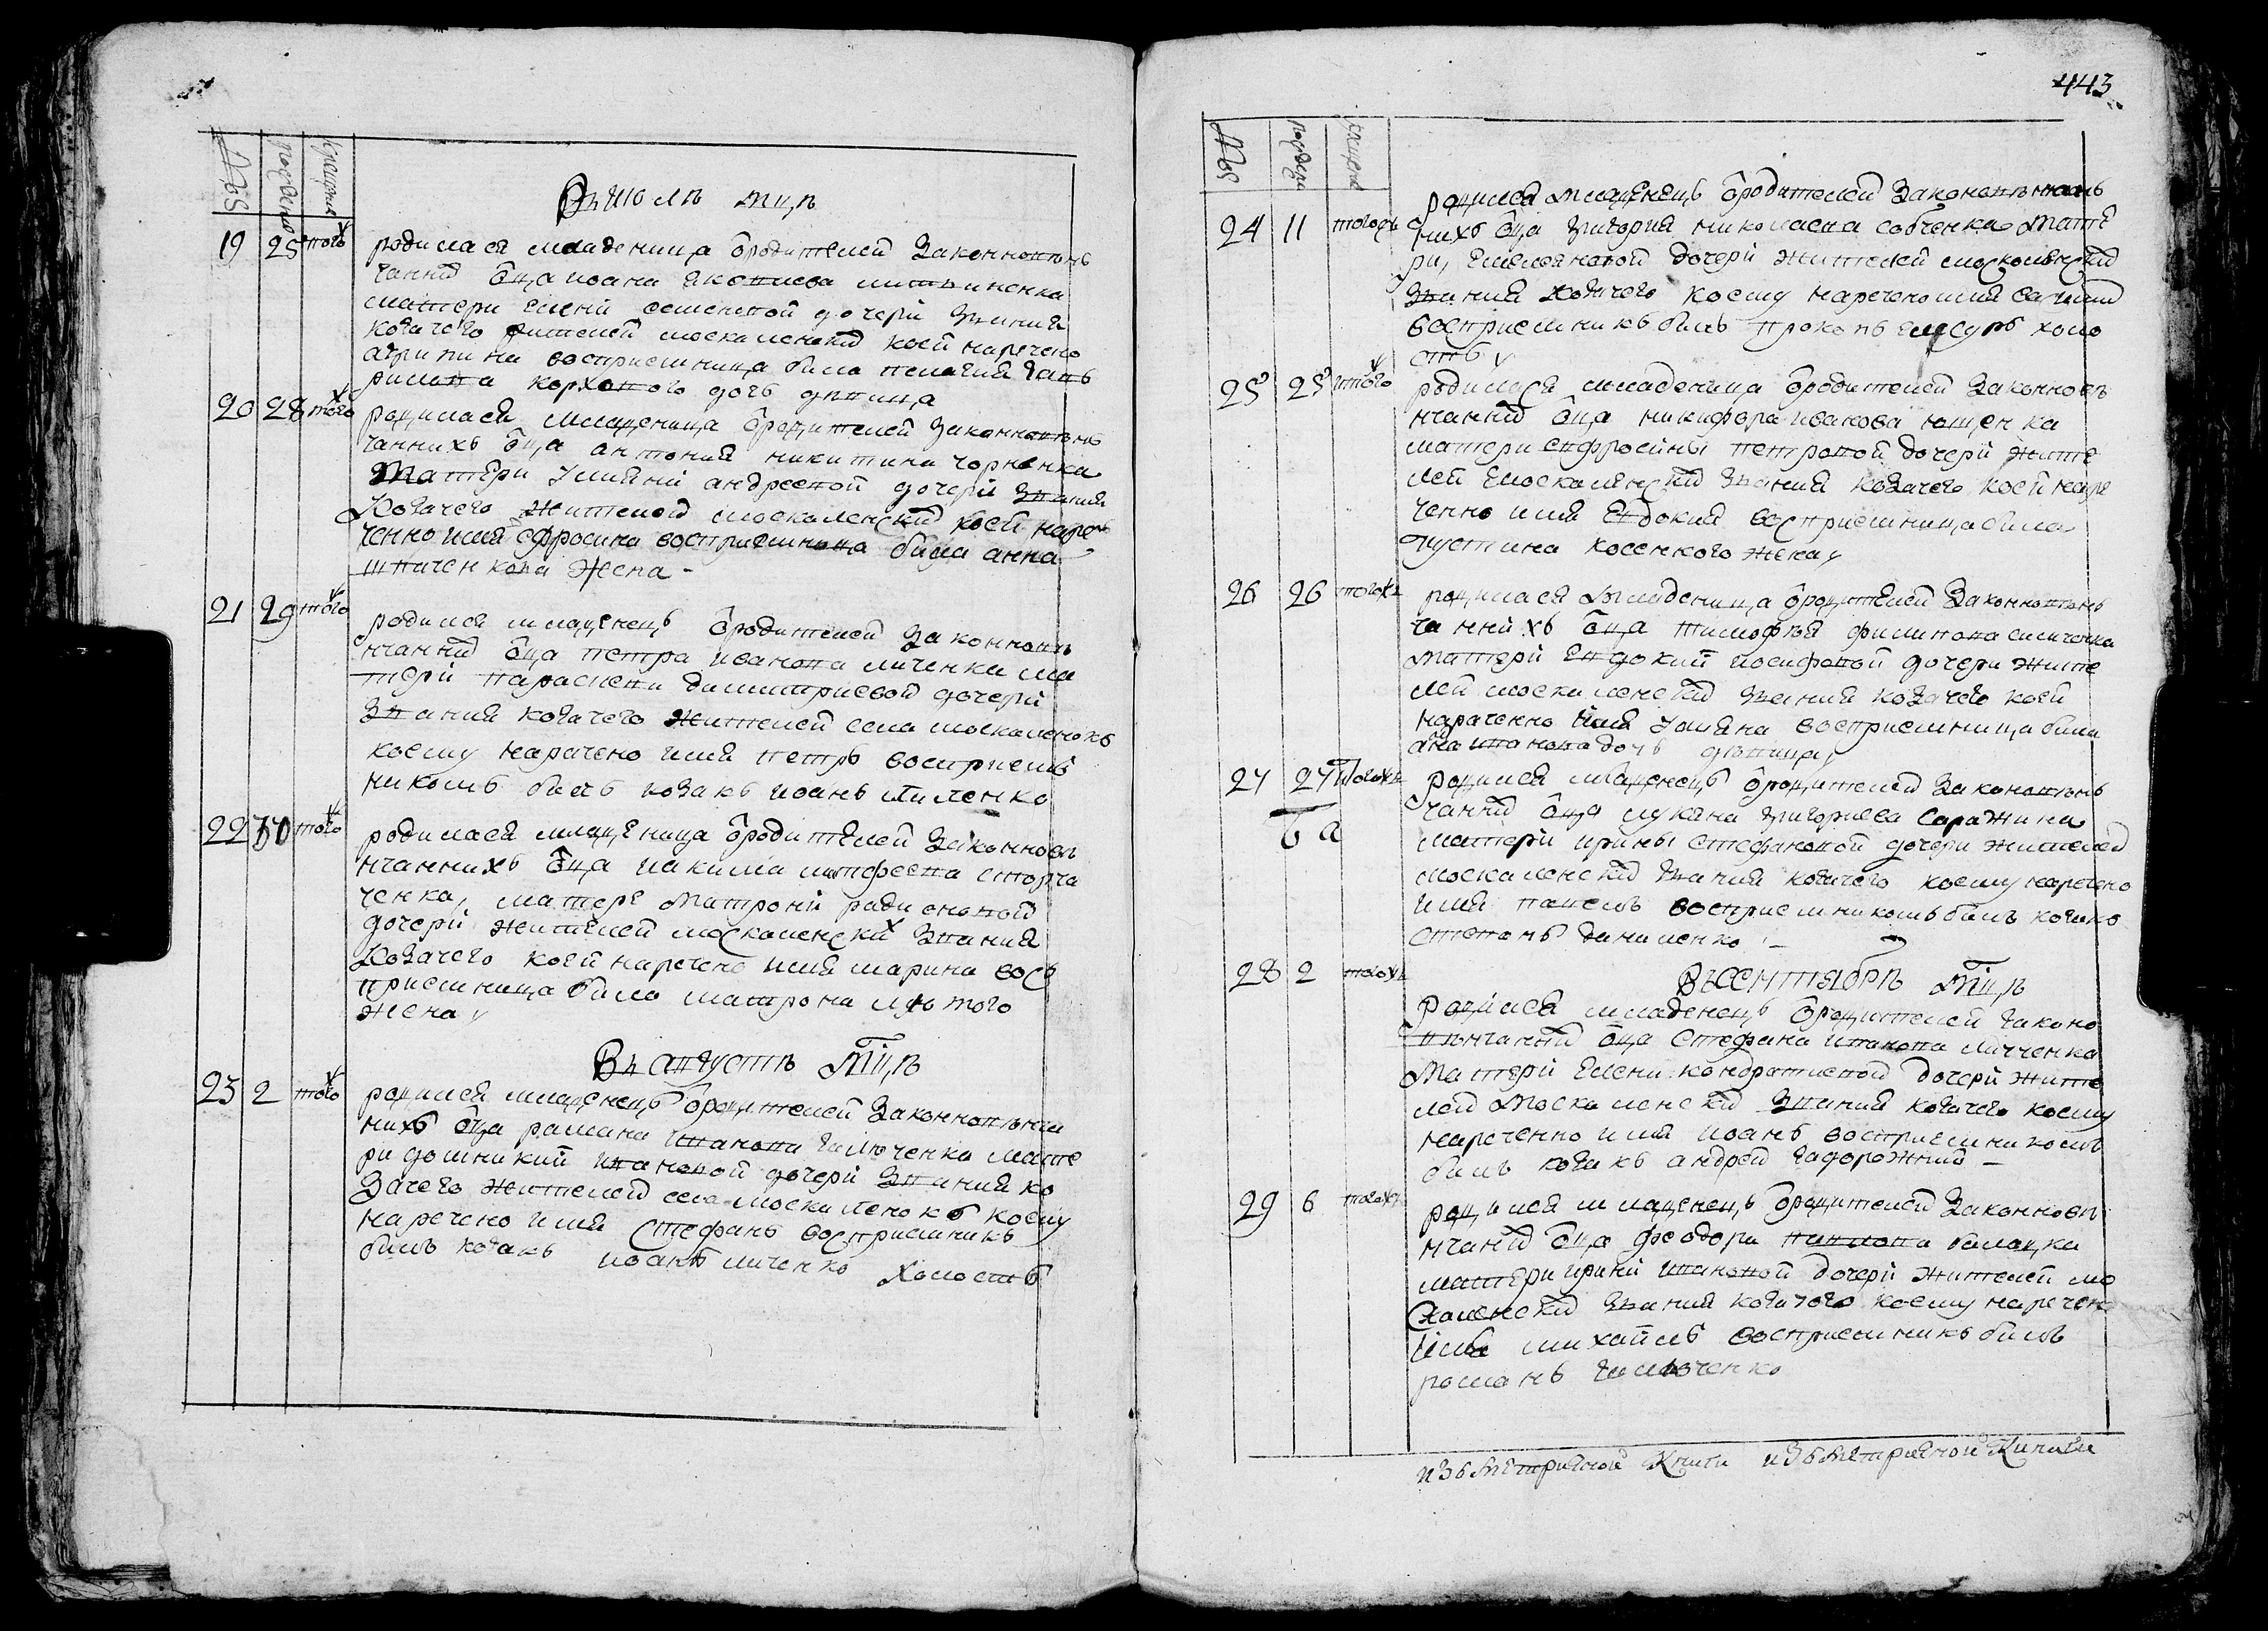 №
рождени
крщения
Въ июлѣ мцѣ
19 25 того ж
родилася младеница ѿ родителей законновѣн
чанних ѿца иоана матери елени семеновой дочерй звания
козачего жителей москаленских коей наречено
агрипина восприемница била пелагия гав
рилова дочь дѣвица
20 28 того ж
родилася младеница ѿ родителей законновѣн
чаннихъ ѿца антония никитина чорненка
матери улияни андреевой дочери звания
козачего жителей москаленских коей наре
ченно имя ефросина восприемница била анна
жена
21 29 того ж
родился младенецъ ѿ родителей законновѣ
нчанних ѿца петра иванова личенка ма
тери параскеви димитриевой дочерй
звания козачего жителей села москаленокъ
коему наречено имя петръ восприем
никомъ билъ козакъ иоанъ
22 30 того ж
родилася младеница ѿ родителей законновѣ
нчаннихъ ѿца иакима матфеева сторча
ченка, матере матрони родионовой
дочерй жителей москаленских звания
козачего коей наречено имя марина вос
приемница била матрона лютого
жена
Въ августѣ мцѣ
23 2 того ж
родился младенецъ ѿ родителей законновѣнча
нихъ ѿца рамана иванова галюченка мате
ри домникий ивановой дочерй звания ко
зачего жителей села москаленокъ коему
наречено имя стефанъ восприемникъ
билъ козакъ иоанъ личенко холостъ
443
№
рождени
крщения
24 11 того ж
родился младенецъ ѿ родителей законовѣнчан
нихъ ѿца григория николаева собченка мате
ри, емеляновой дочери жителей москаленских
звания козачего коему наречено имя
восприемникъ билъ прокопъ холо
стъ
25 25 того ж
родилася младеница ѿ родителей законновѣ
нчанних ѿца никифора иванова ющенка
матери евфросины петровой дочерй жите
лей москаленских звания козачего коей наре
ченно имя евдокия восприемница била
густина косенкого жена
26 26 того ж
родилася младеница ѿ родителей законновѣн
чаннихъ ѿца тимофѣя филипова
матерй евдокий иосифовой дочери жите
лей москаленских звания козачего коей
нараченно имя улияна восприемница била
ана иванова дочъ дѣвица
27 27 того ж
родился младенецъ ѿ родителей законовѣн
чаних ѿца лукяна григориева саражина
матери ирины стефановой дочери жителей
москаленских звания козачего коему наречено
имя павелъ восприемникомъ билъ козакъ
степанъ даниленко
Въ сентябрѣ мцѣ
28 2 того ж
родился младенецъ ѿ родителей законо
вѣнчаних ѿца стефана иванова личченка
матерй елени кондратиевой дочерй жите
лей москаленских звания козачего коему
нареченно имя иоанъ восприемникомъ
билъ козакъ андрей задорожний
29 6 того ж
родился младенецъ ѿ родителей законновѣ
нчаних ѿца феодора павлова
матери ирини ивановой дочерй жителей мо
скаленских звания козачого коему наречен
имя михаилъ восприемникъ билъ
романъ галюченко
изъ метричной книги изъ метричной книги